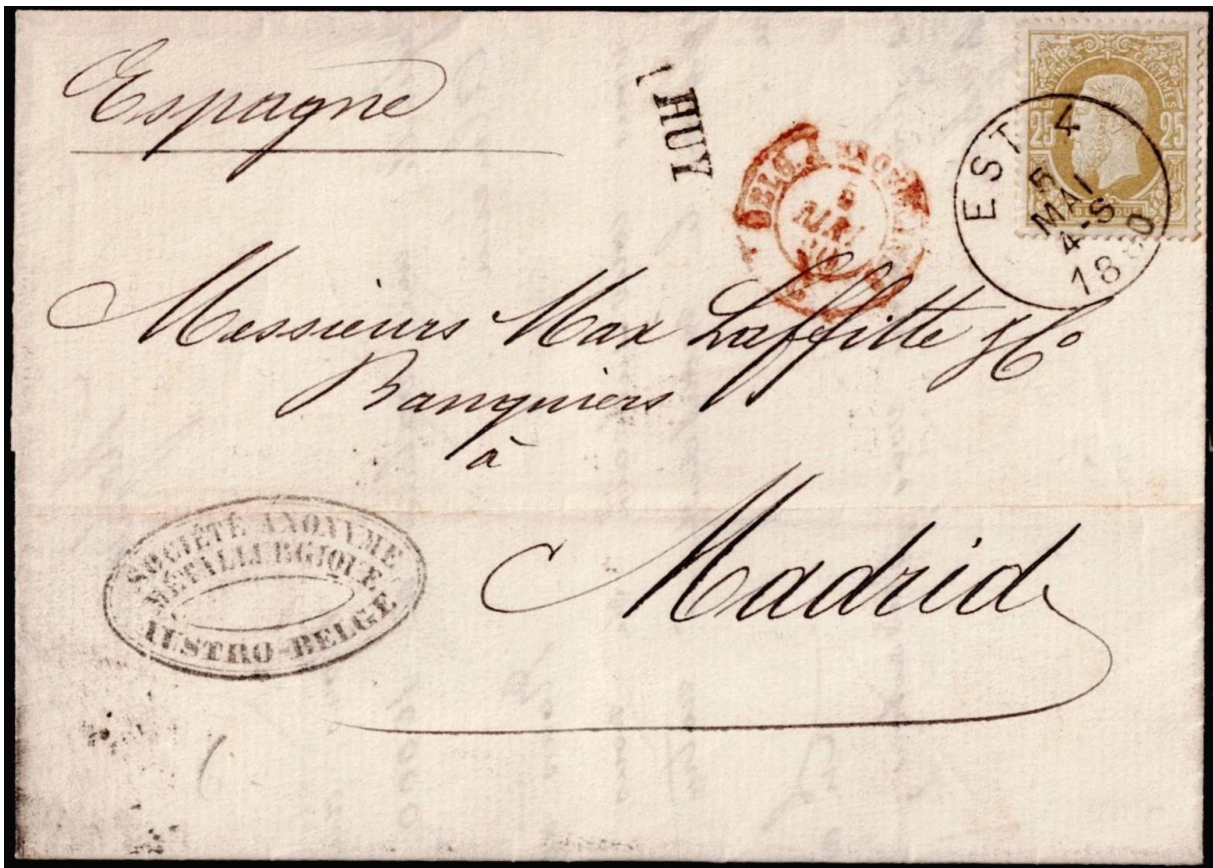 Espagne
HUY
25 25
EST 4
5
MAI
4-S
1880
Messieurs Max Laffitte & Co
Banquiers
à
Madrid
SOCIÉTÉ ANONYME
MÉTALLURGIQUE
AUSTRO-BELGE